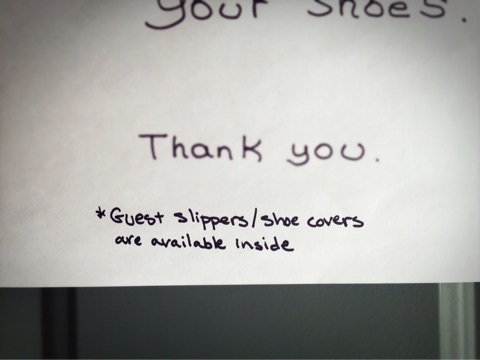 your shoes.
Thank you.
*Guest slippers/shoe covers
are available inside